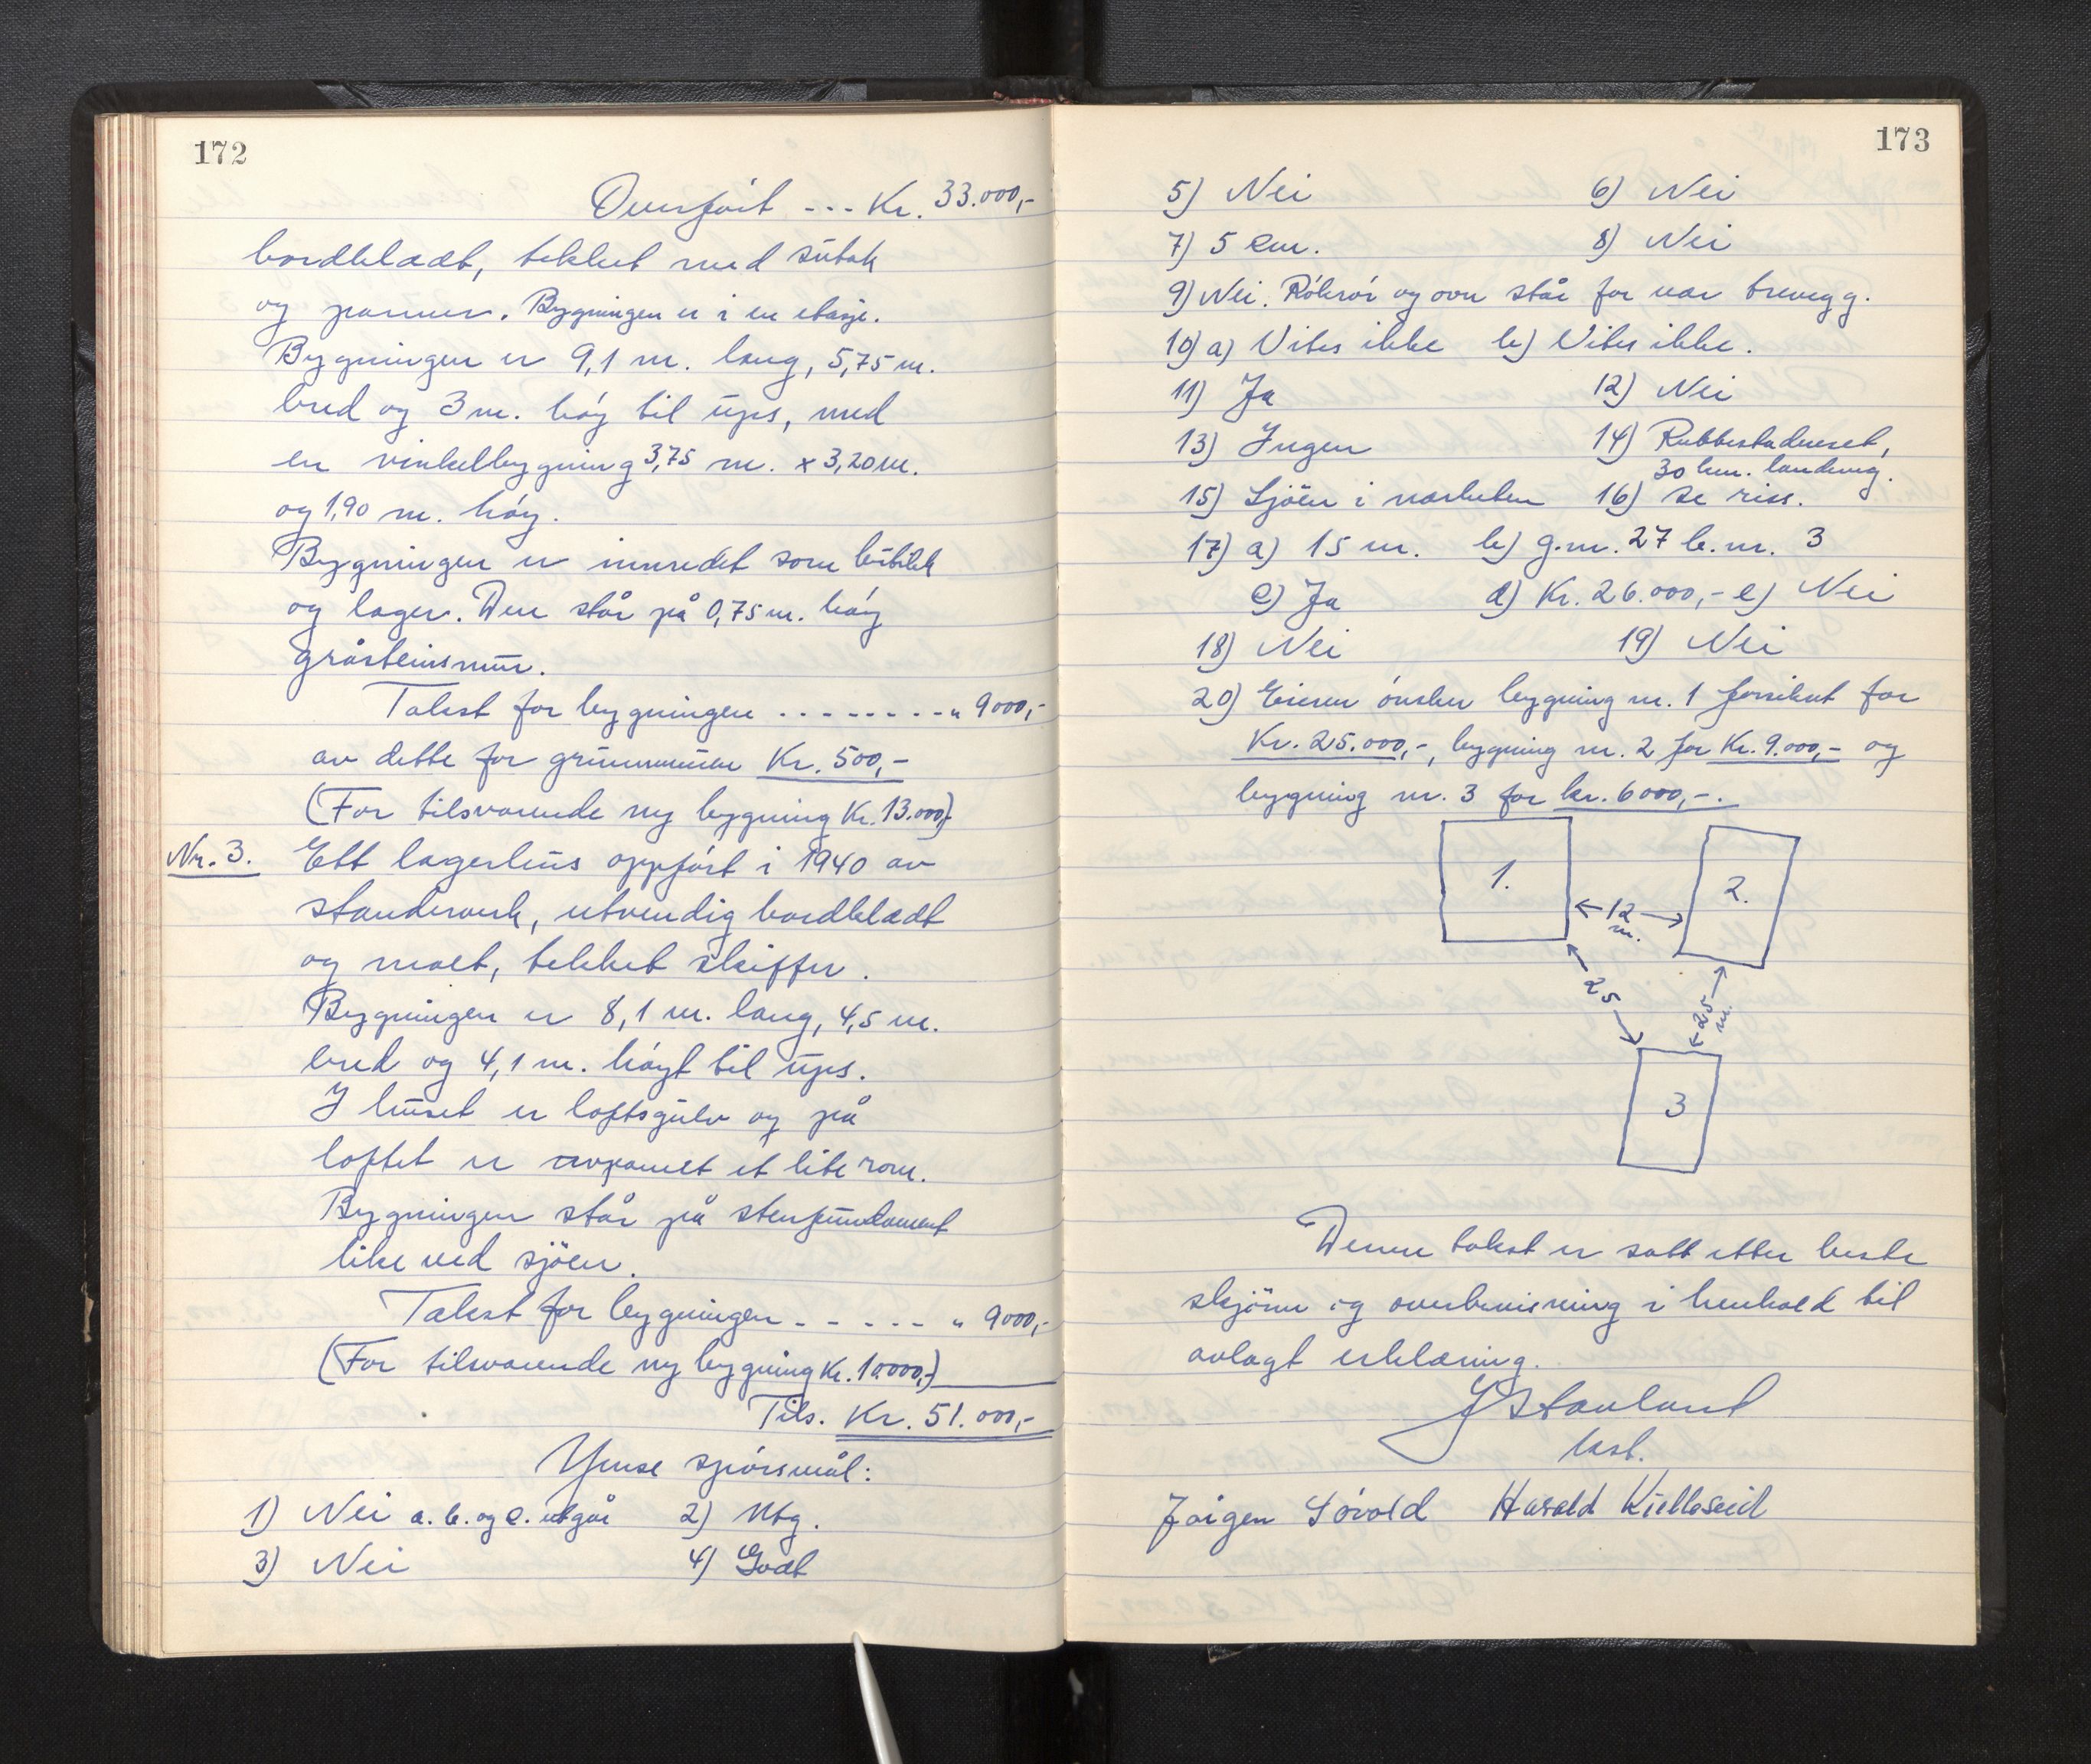 172
Overført --- Kr. 33.000,-
bordkledt, tekket med sutak
og panner. Bygningen er i en etasje.
Bygningen er 9,1 m. lang, 5,75 m.
bred og 3 m. høy til ups, med
en vinkelbygning 3,75 m. x 3,20 m.
og 1,90 m. høy.
Bygningen er innredet som butikk
og lager. Den står på 0,75 m. høy
gråsteinsmur.
Takst for bygningen -------- " 9000,-
av dette for grunnmuren Kr. 500,-
(For tilsvarende ny bygning Kr. 13.000,-)
Nr. 3. Ett lagerhus oppført i 1940 av
standerverk, utvendig bordkledt
og malt, tekket skiffer.
Bygningen er 8,1 m. lang, 4,5 m.
bred og 4,1 m. høgt til ups.
I huset er loftsgulv og på
loftet er avpanelt et lite rom.
Bygningen står på stenfundament
like ved sjøen.
Takst for bygningen ----- " 9000,-
(For tilsvarende ny bygning Kr. 10.000,-)
Tils. Kr. 51.000,-
Ymse spørsmål:
1) Nei a. b. og c. utgår 2) Utg.
3) Nei 4) Godt
173
5) Nei 6) Nei
7) 5 cm. 8) Nei
9) Nei. Rökrör og ovn står for nær trevegg.
10) a) Vites ikke b) Vites ikke.
11) Ja 12) Nei
13) Ingen 14) Rubbestadneset,
30 km. landveg.
15) Sjöen i nærheten 16) se riss.
17) a) 15 m. b) g.nr. 27 b.nr. 3
c) Ja d) Kr. 26.000,- e) Nei
18) Nei 19) Nei
20) Eieren ønsker bygning nr. 1 forsikret for
Kr. 25.000,-, bygning nr. 2 for Kr. 9.000,- og
bygning nr. 3 for kr. 6000,-.
1.
2.
12
m.
25
25
m.
3
Denne takst er satt etter beste
skjönn og overbevisning i henhold til
avlagt erklæring.
J Stavland
lest.
Jørgen Søvold Harald Kielleseid